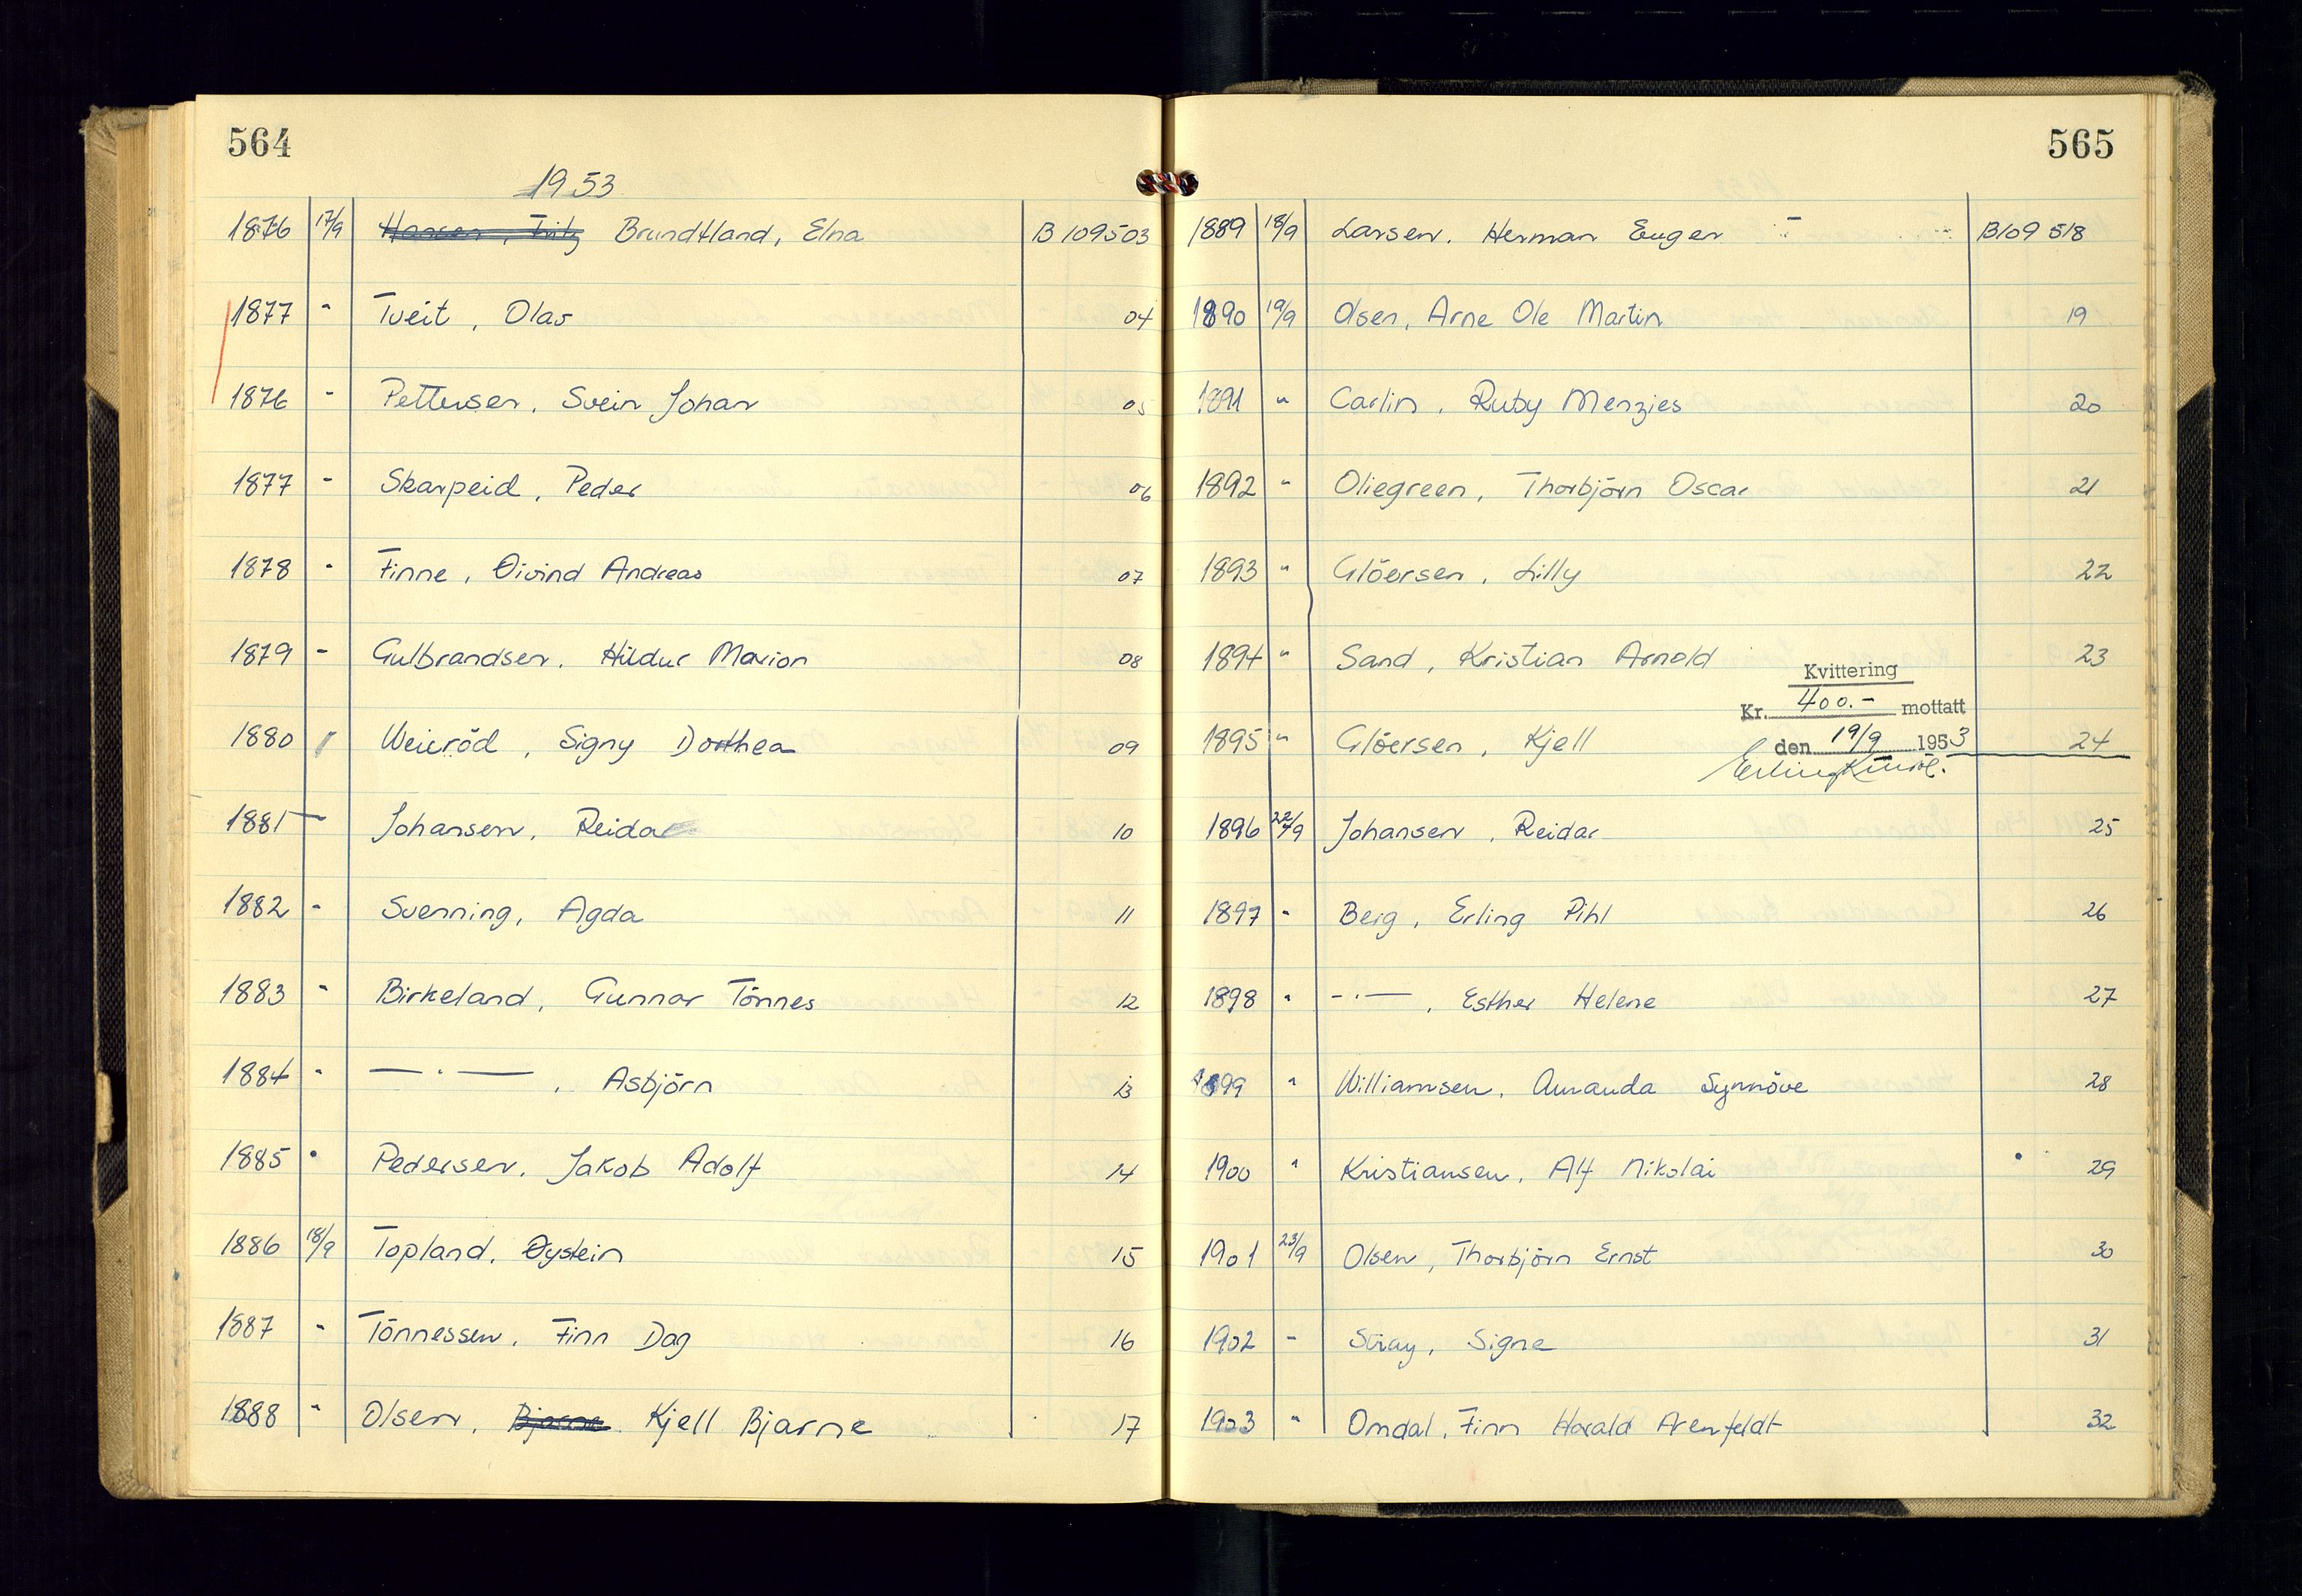 564
1953
1876 17/9 Hansen, Fritz Brundtland, Elna B 109503
1877 " Tveit, Olav 04
1876 " Pettersen, Svein Johan 05
1877 " Skarpeid, Peder 06
1878 " Finne, Øivind Andreas 07
1879 " Gulbrandsen, Hildur Marion 08
1880 " Weieröd, Signy Dorthea 09
1881 — Johansen, Reidar 10
1882 " Svenning, Agda 11
1883 " Birkeland, Gunnar Tönnes 12
1884 " — · — , Asbjörn 13
1885 " Pedersen, Jakob Adolf 14
1886 18/9 Topland, Øystein 15
1887 " Tönnessen, Finn Dag 16
1888 " Olsen, Bjarne Kjell Bjarne 17
565
1889 18/9 Larsen, Herman Eugen B109518
1890 19/9 Olsen, Arne Ole Martin 19
1891 " Carlin, Ruby Menzies 20
1892 " Oliegreen, Thorbjörn Oscar 21
1893 " Glöersen, Lilly 22
1894 " Sand, Kristian Arnold 23
Kvittering
Kr. 400.- mottatt
1895 " Glöersen, Kjell den 19/9 1953 24
1896 22/9 Johansen, Reidar 25
1897 " Berg, Erling Pihl 26
1898 " — · — , Esther Helene 27
1899 " Williamsen, Amanda Synnöve 28
1900 " Kristiansen, Alf Nikolai 29
1901 23/9 Olsen, Thorbjörn Ernst 30
1902 " Stray, Signe 31
1903 " Omdal, Finn Harald Arenfeldt 32